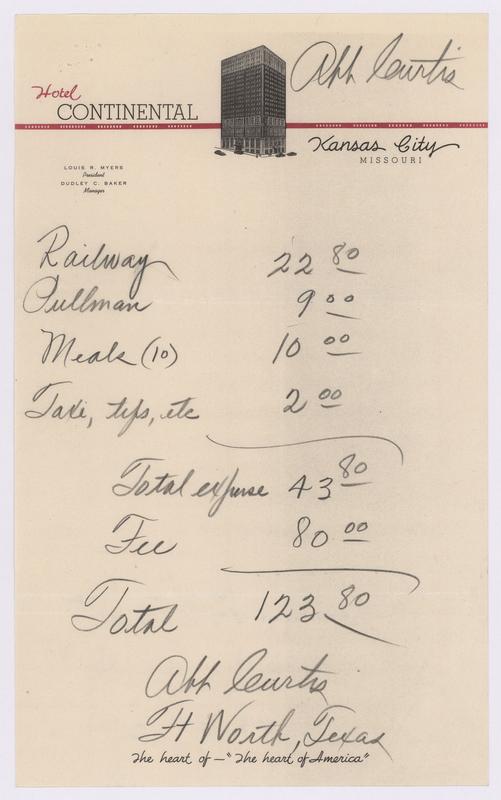 Abb Curtis
Hotel
CONTINENTAL
Kansas City
MISSOURI
LOUIS R. MYERS
President
DUDLEY C. BAKER
Manager
Railway 22 80
Pullman 9 00
Meals (10) 10 00
Taxi, tips, etc 2 00
Total expense 43 80
Fee 80 00
Total 123 80
Abb Curtis
Ft Worth, Texas
The heart of — "The heart of America"